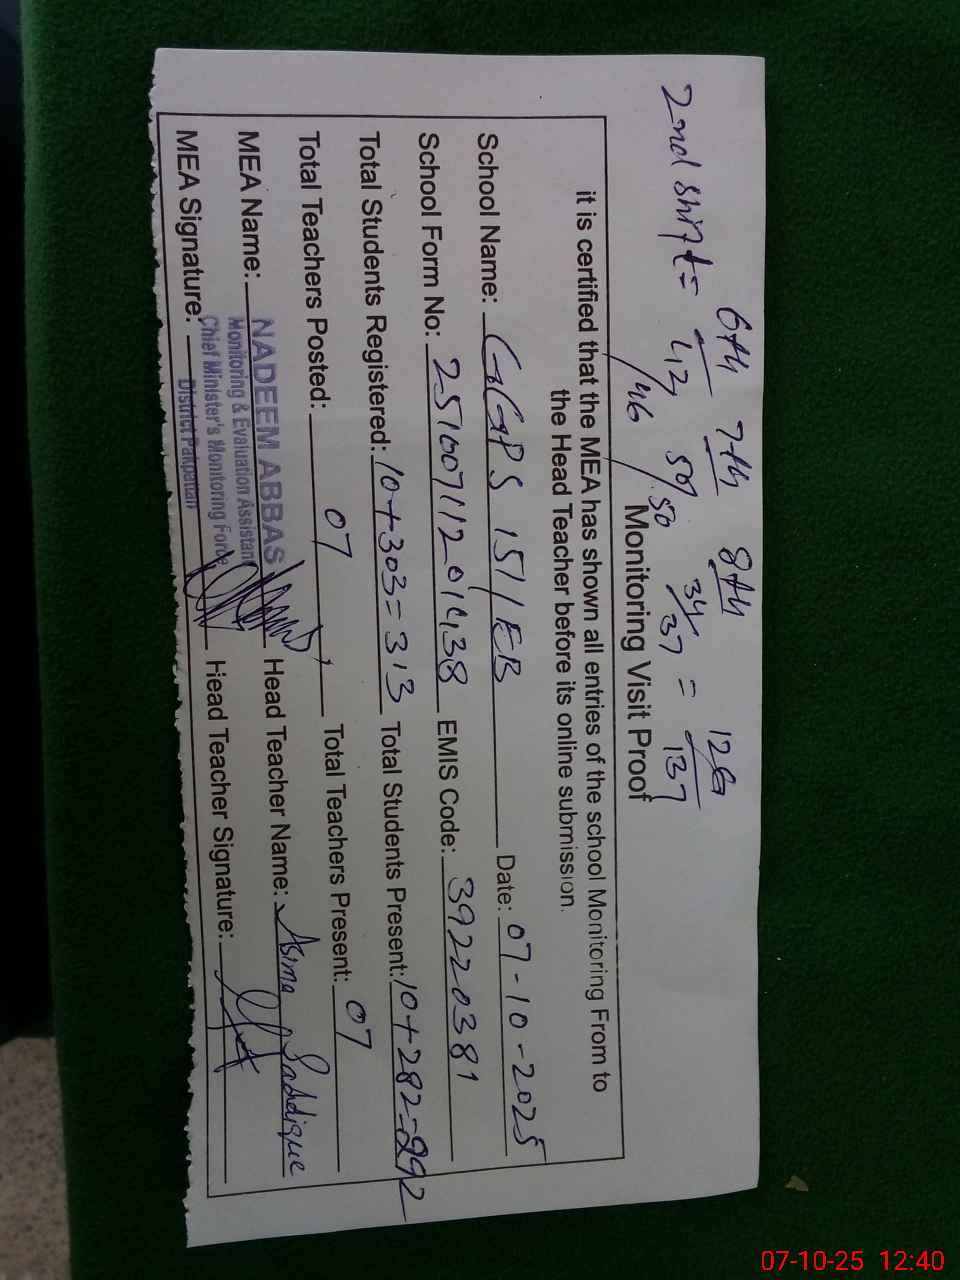 6th 7th 8th
2nd shift = 42/46 50/50 34/37 = 126/137
Monitoring Visit Proof
it is certified that the MEA has shown all entries of the school Monitoring From to
the Head Teacher before its online submission.
School Name: GGPS 151/EB Date: 07-10-2025
School Form No: EMIS Code: 39220381
Total Students Registered: 10+303=313 Total Students Present: 10+282=292
Total Teachers Posted: 07 Total Teachers Present: 07
MEA Name: NADEEM ABBAS Head Teacher Name: Asma Saddique
Monitoring & Evaluation Assistant
Chief Minister's Monitoring Force
MEA Signature: District Pakpattan Head Teacher Signature:
07-10-25 12:40